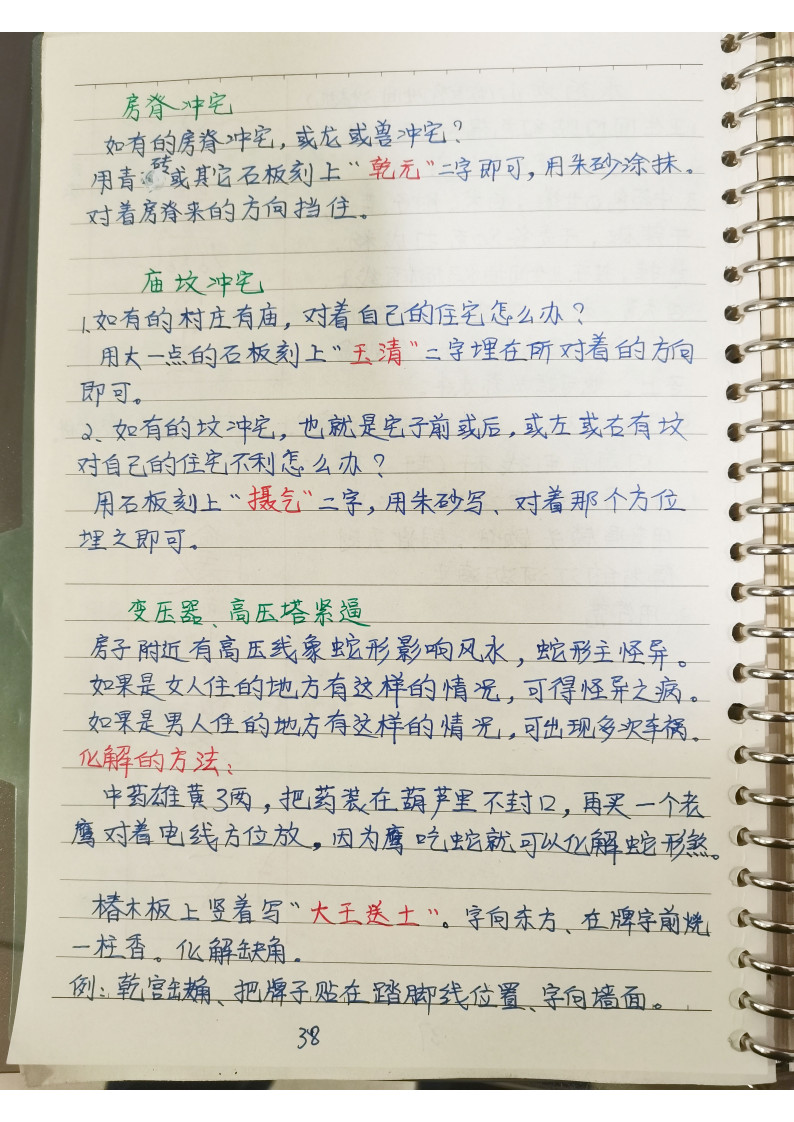 房脊冲宅
如有的房脊冲宅，或龙或兽冲宅？
用青砖或其它石板刻上“乾元”二字即可，用朱砂涂抹。
对着房脊来的方向挡住。
庙坟冲宅
1、如有的村庄有庙，对着自己的住宅怎么办？
用大一点的石板刻上“玉清”二字埋在所对着的方向
即可。
2、如有的坟冲宅，也就是宅子前或后，或左或右有坟
对自己的住宅不利怎么办？
用石板刻上“摄气”二字，用朱砂写、对着那个方位
埋之即可。
变压器、高压塔紧逼
房子附近有高压线象蛇形影响风水，蛇形主怪异。
如果是女人住的地方有这样的情况，可得怪异之病。
如果是男人住的地方有这样的情况，可出现多次车祸。
化解的方法：
中药雄黄3两，把药装在葫芦里不封口，再买一个老
鹰对着电线方位放，因为鹰吃蛇就可以化解蛇形煞。
椿木板上竖着写“大王送土”。字向东方、在牌字前烧
一柱香。化解缺角.
例：乾宫缺角、把牌子贴在踏脚线位置、字向墙面。
38